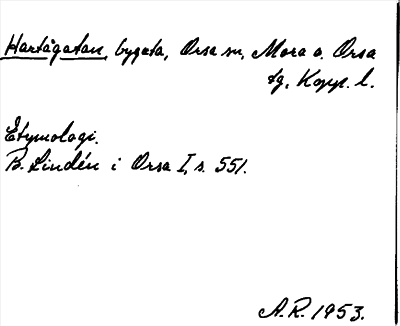 Hartågatan, bygata, Orsa sn, Mora o. Orsa
tg, Kopp. l.
Etymologi.
B. Lindén i Orsa I, s. 551.
A.R. 1953.